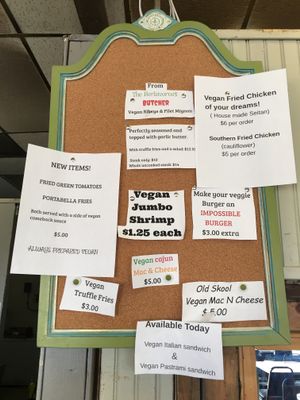 From
The Herbivorous
BUTCHER
Vegan Ribeye & Filet Mignon
Perfectly seasoned and
topped with garlic butter.
With truffle fries and a salad
Steak only
Vegan Fried Chicken
of your dreams!
( House made Seitan)
$6 per order
Southern Fried Chicken
(cauliflower)
$5 per order
NEW ITEMS!
FRIED GREEN TOMATOES
PORTABELLA FRIES
Both served with a side of vegan
comeback sauce
$5.00
ALWAYS PREPARED VEGAN
Vegan
Jumbo
Shrimp
$1.25 each
Make your veggie
Burger an
IMPOSSIBLE
BURGER
$3.00 extra
Vegan cajun
Mac & Cheese
$5.00
Vegan
Truffle Fries
$3.00
Old Skool
Vegan Mac N Cheese
$5.00
Available Today
Vegan Italian sandwich
&
Vegan Pastrami sandwich